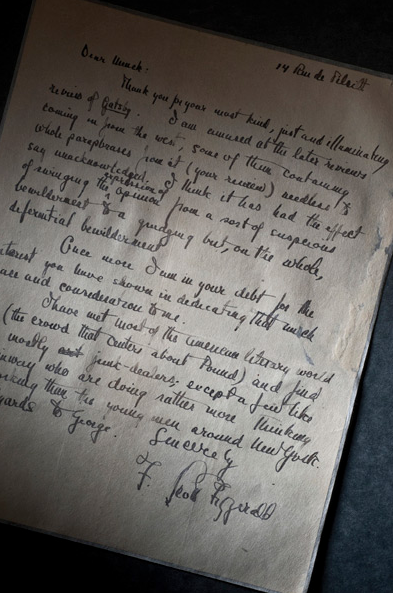 14 Rue de Tilsitt
Dear Menck:
Thank you for your most kind, just and illuminating
review of Gatsby. I am amused at the later reviews
coming in from the west, some of them containing
whole paraphrases from it (your review) needless to
say unacknowledged. I think it has had the effect
of swinging the expression of opinion from a sort of suspicious
bewilderment to a grudging but, on the whole,
deferential bewilderment
Once more I am in your debt for the
interest you have shown in dedicating that much
and consideration to me.
I have met most of the American literary world
(the crowd that centers about Pound) and find
mostly junk-dealers; except a few like
who are doing rather more thinking
than the young men around New York.
to George.
Sincerely
F. Scott Fitzgerald